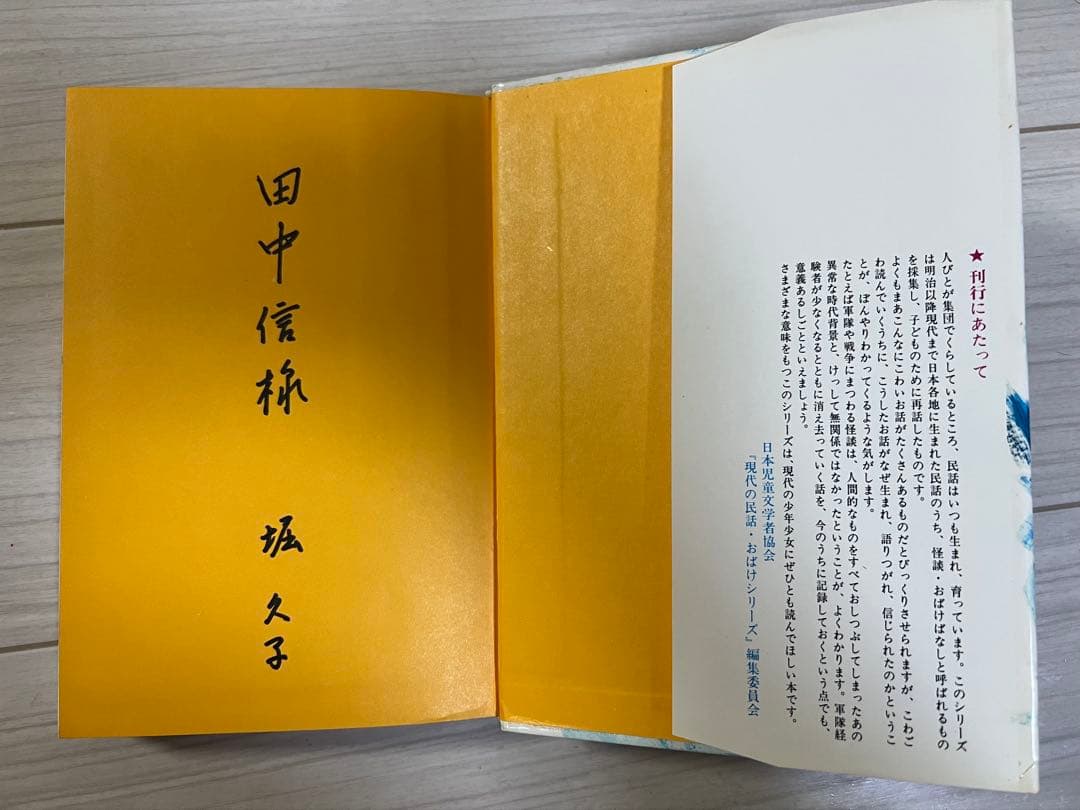 ★刊行にあたって
人びとが集団でくらしているところ、民話はいつも生まれ、育っています。このシリーズ
は明治以降現代まで日本各地に生まれた民話のうち、怪談・おばけばなしと呼ばれるもの
を採集し、子どものために再話したものです。
よくもまあこんなにこわいお話がたくさんあるものだとびっくりさせられますが、こわご
わ読んでいくうちに、こうしたお話がなぜ生まれ、語りつがれ、信じられたのかというこ
とが、ぼんやりわかってくるような気がします。
たとえば軍隊や戦争にまつわる怪談は、人間的なものをすべておしつぶしてしまったあの
異常な時代背景と、けっして無関係ではなかったということが、よくわかります。軍隊経
験者が少なくなるとともに消え去っていく話を、今のうちに記録しておくという点でも、
意義あるしごとといえましょう。
さまざまな意味をもつこのシリーズは、現代の少年少女にぜひとも読んでほしい本です。
日本児童文学者協会
『現代の民話・おばけシリーズ』編集委員会
田中信様
堀久子